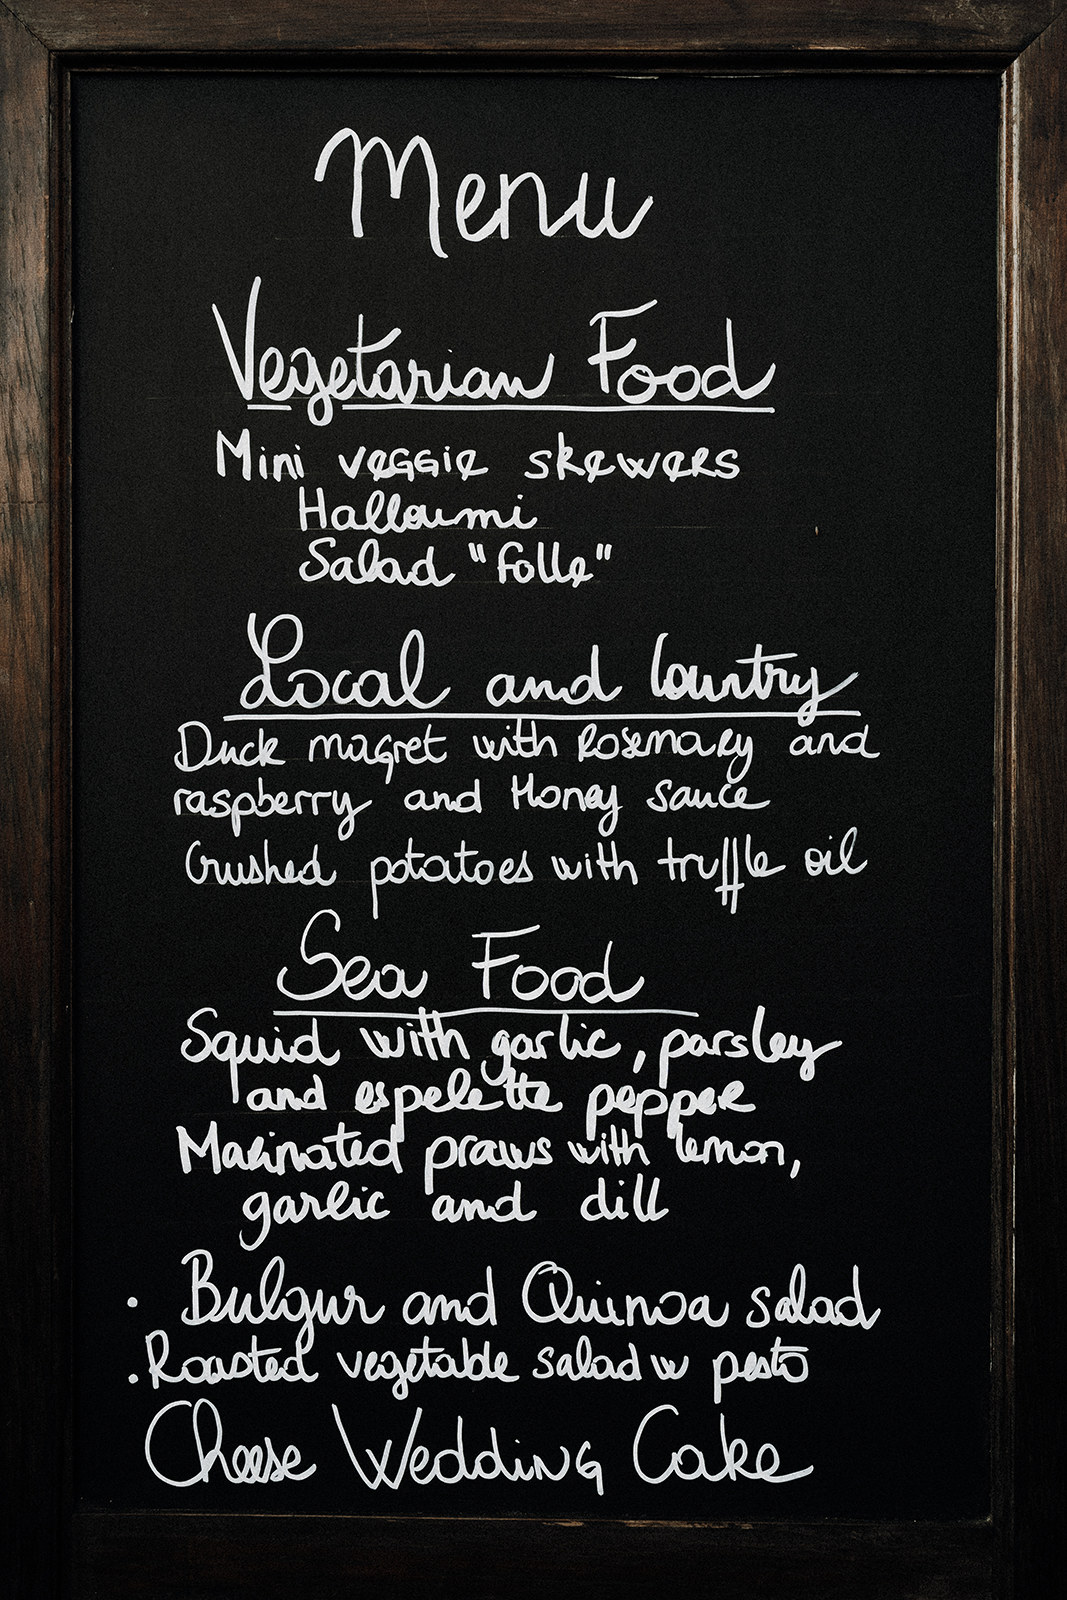 Menu
Vegetarian Food
Mini veggie skewers
Halloumi
Salad "folle"
Local and Country
Duck magret with Rosemary and
raspberry and Honey sauce
Crushed potatoes with truffle oil
Sea Food
Squid with garlic, parsley
and espelette pepper
Marinated praws with lemon,
garlic and dill
. Bulgur and Quinoa salad
. Roasted vegetable salad w pesto
Cheese Wedding Cake